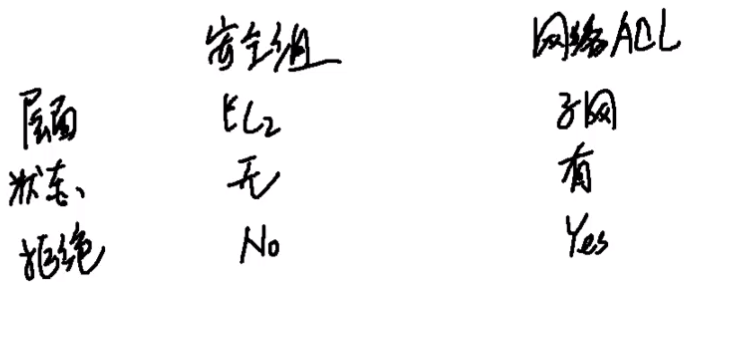 安全组 网络ACL
层面 EC2 子网
状态 无 有
拒绝 No Yes